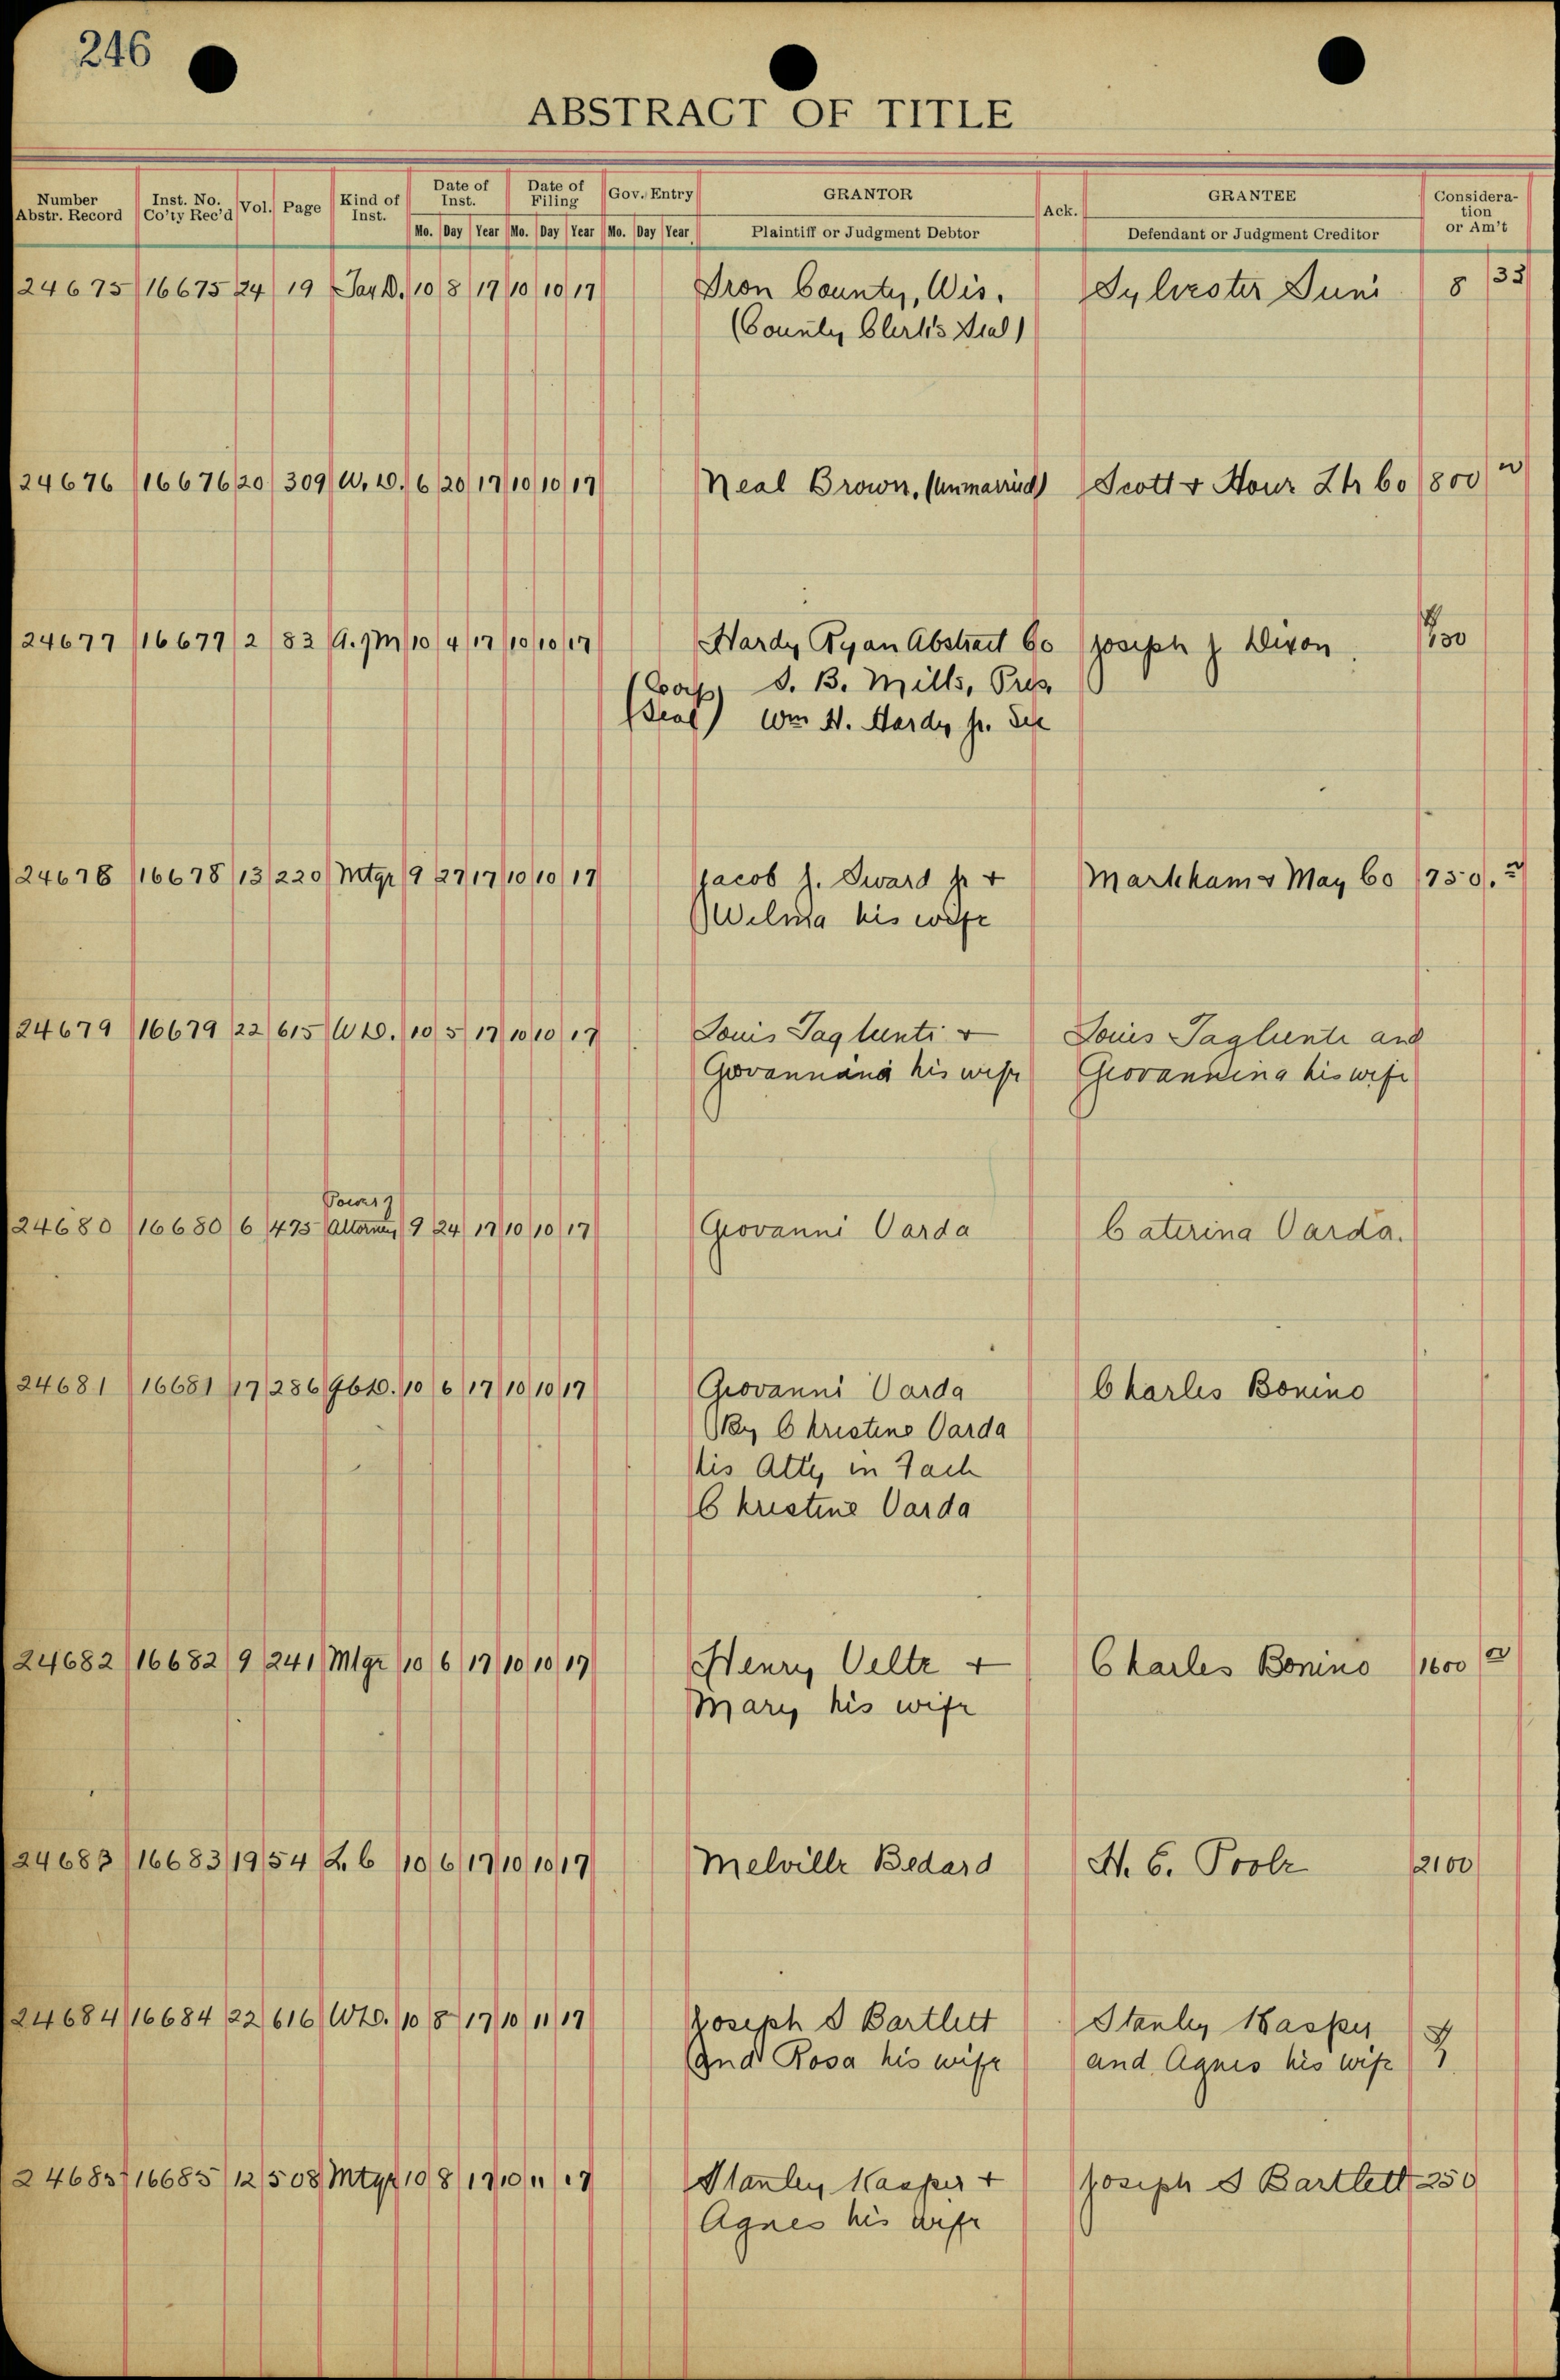 246
ABSTRACT OF TITLE
Number Abstr. Record Inst. No. Co'ty Rec'd Vol. Page Kind of Inst. Date of Inst. Date of Filing Gov. Entry GRANTOR Ack. GRANTEE Consideration or Am't
Mo. Day Year Mo. Day Year Mo. Day Year Plaintiff or Judgment Debtor Defendant or Judgment Creditor
24675 16675 24 19 Tax D. 10 8 17 10 10 17 Iron County, Wis. Sylvester Suni 8 33
(County Clerk's Seal)
24676 16676 20 309 W. D. 6 20 17 10 10 17 Neal Brown, (unmarried) Scott & Howe Lbr Co 800
24677 16677 2 83 A. of M 10 4 17 10 10 17 Hardy Ryan Abstract Co Joseph J Dixon
(Corp S. B. Mills, Pres
Seal) Wm H. Hardy Jr. Sec
24678 16678 13 220 Mtge 9 27 17 10 10 17 Jacob J. Sward Jr + Markham & May Co 750.
Wilma his wife
24679 16679 22 615 W D. 10 5 17 10 10 17 Louis Taglienti + Louis Tagliente and
Giovannina his wife Giovannina his wife
Power of
24680 16680 6 475 Attorney 9 24 17 10 10 17 Giovanni Varda Caterina Varda.
24681 16681 17 286 Q C D. 10 6 17 10 10 17 Giovanni Varda Charles Bonino
By Christine Varda
His Atty in Fach
Christine Varda
24682 16682 9 241 Mtge 10 6 17 10 10 17 Henry Veltz + Charles Bonino 1600
Mary his wife
24683 16683 19 54 L. C 10 6 17 10 10 17 Melville Bedard H. C. Poole 2100
24684 16684 22 616 W D. 10 8 17 10 11 17 Joseph S Bartlett Stanley Kasper
and Rosa his wife and Agnes his wife
24685 16685 12 508 Mtge 10 8 17 10 11 17 Stanley Kasper + Joseph S Bartlett 250
Agnes his wife